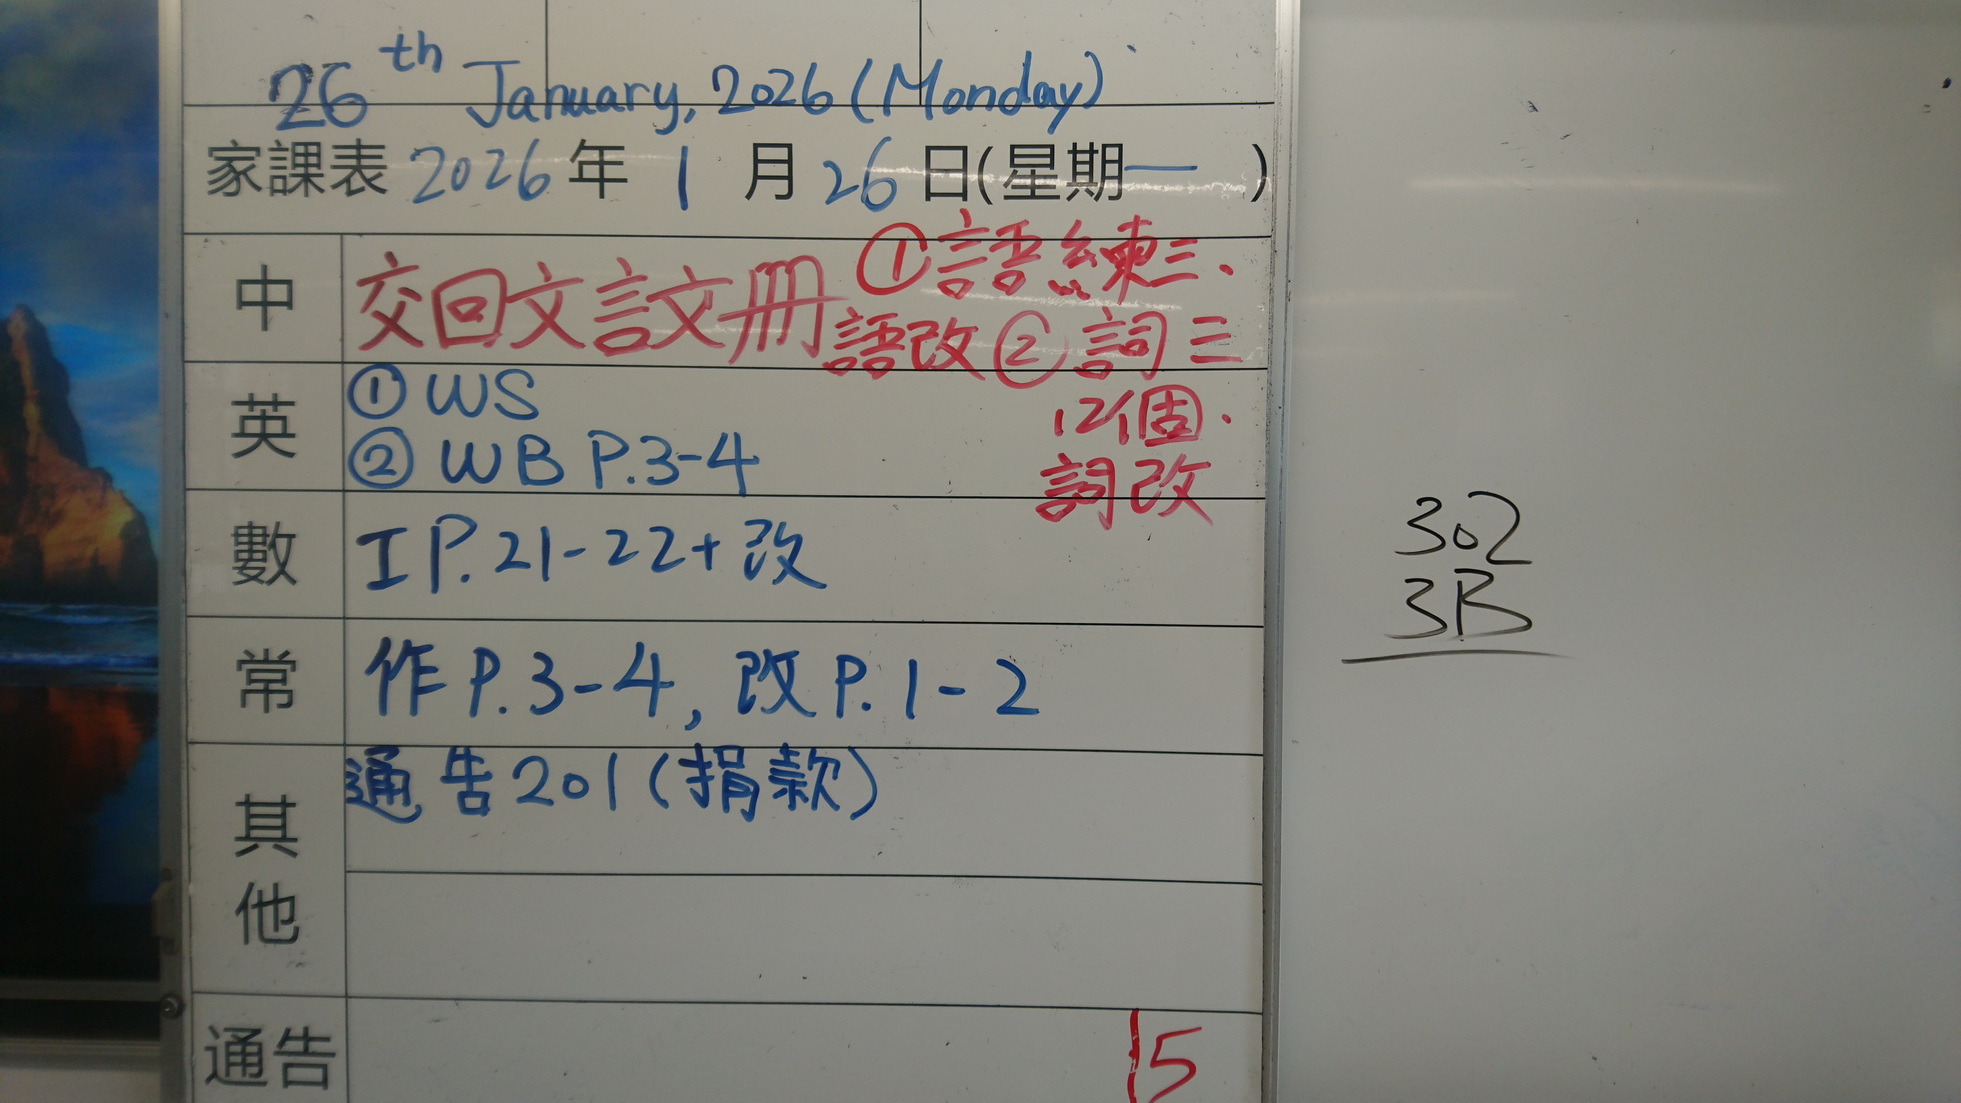 26th January, 2026 (Monday)
家課表 2026 年 1 月 26 日(星期一 )
中 交回文言文冊 ①語練三、
語改 ② 詞三
12個、
詞改
英 ① WS
② WB P.3-4
數 I P.21-22+改
常 作 P.3-4, 改 P.1-2
其他 通告201(捐款)
通告 15
302
3B